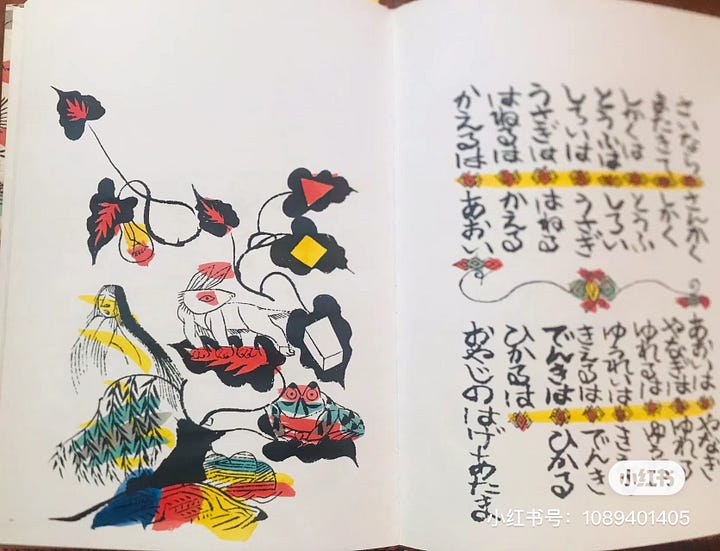 さいなら さんかく
またきて しかく
しかくは とうふ
とうふは しろい
しろいは うさぎ
うさぎは はねる
はねるは かえる
かえるは あおい
あおいは やなぎ
やなぎは ゆれる
ゆれるは
ゆうれいは
きえるは でんき
でんきは ひかる
ひかるは
おやじの はげあたま
小红书
小红书号: 1089401405